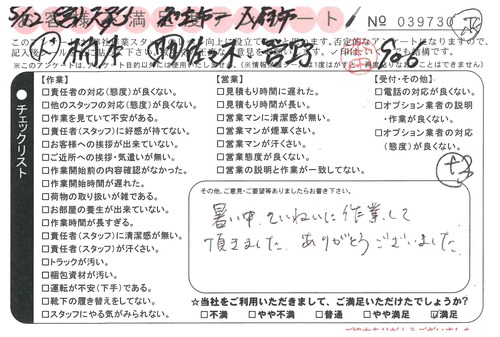 お客様満足アンケート
№ 039730
チェックリスト
【作業】
□責任者の対応(態度)が良くない。
□他のスタッフの対応(態度)が良くない。
□作業を見ていて不安がある。
□責任者(スタッフ)に好感が持てない。
□お客様への挨拶が出来ていない。
□ご近所への挨拶・気遣いが無い。
□作業開始前の内容確認がなかった。
□作業開始時間が遅れた。
□荷物の取り扱いが雑である。
□お部屋の養生が出来ていない。
□作業時間が長すぎる。
□責任者(スタッフ)に清潔感が無い。
□責任者(スタッフ)が汗くさい。
□トラックが汚い。
□梱包資材が汚い。
□運転が不安(下手)である。
□靴下の履き替えをしてない。
□スタッフにやる気がみられない。
【営業】
□見積もり時間に遅れた。
□見積もり時間が長い。
□営業マンに清潔感が無い。
□営業マンが煙草くさい。
□営業マンが汗くさい。
□営業態度が良くない。
□営業の説明と作業が一致してない。
【受付・その他】
□電話の対応が良くない。
□オプション業者の説明
・作業が良くない。
□オプション業者の対応
(態度)が良くない。
その他、ご意見・ご要望等ありましたらお書き下さい。
暑い中、ていねいに作業して
頂きました。ありがとうございました。
☆当社をご利用いただきまして、ご満足いただけたでしょうか?
□不満 □やや不満 □普通 □やや満足 ☑満足